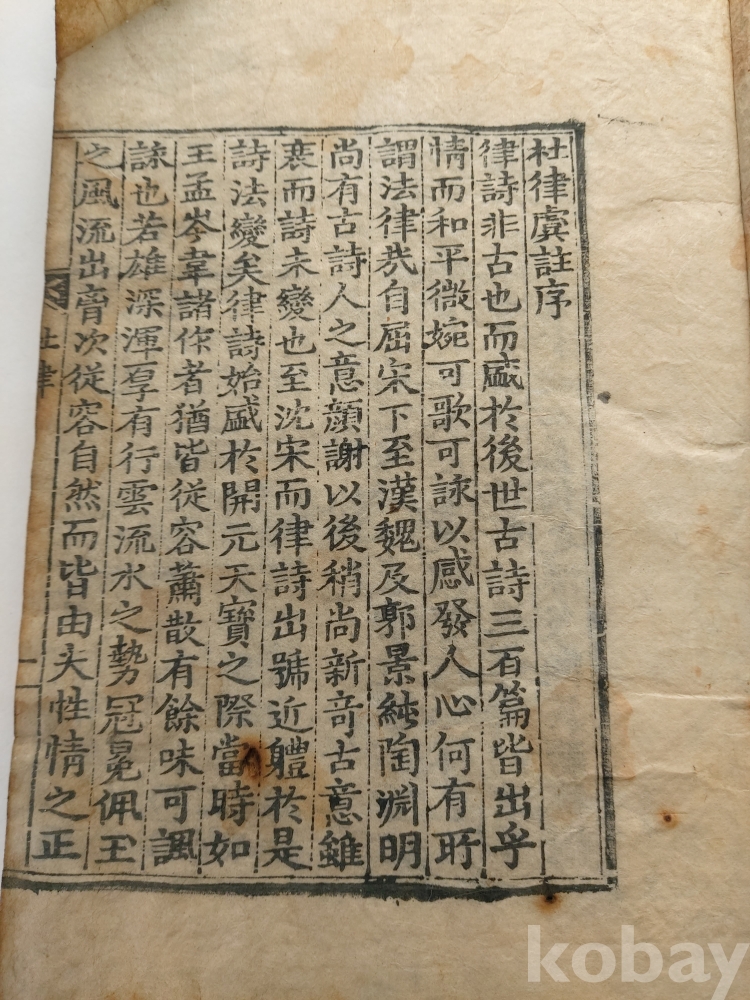 杜律虞註序
律詩非古也而盛於後世古詩三百篇皆出乎
情而和平微婉可歌可詠以感發人心何有所
謂法律㢤自屈宋下至漢魏及郭景純陶淵明
尚有古詩人之意顔謝以後稍尚新竒古意雖
衰而詩未變也至沈宋而律詩出號近軆於是
詩法變矣律詩始盛於開元天寶之際當時如
王孟岑韋諸作者猶皆從容蕭散有餘味可諷
詠也若雄深渾厚有行雲流水之勢冠冕佩玉
之風流出胷次從容自然而皆由夫性情之正
杜律
一
kobay